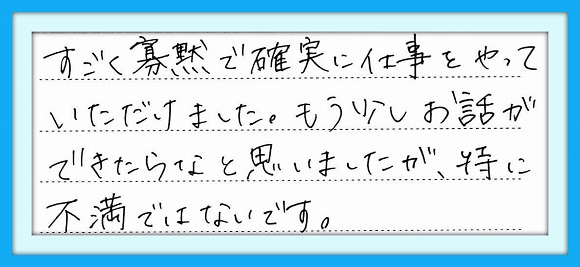 すごく寡黙で確実に仕事をやって
いただけました。もう少しお話が
できたらなと思いましたが、特に
不満ではないです。